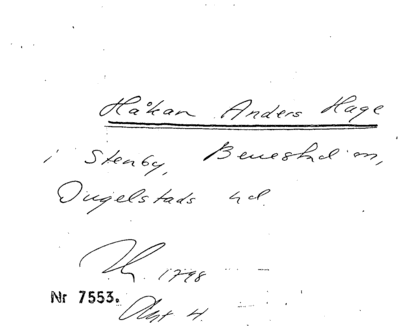 Håkan Anders Hage
i Stenby, Benestad sn,
Ingelstads hd.
1798
Nr 7553.
Akt 4.